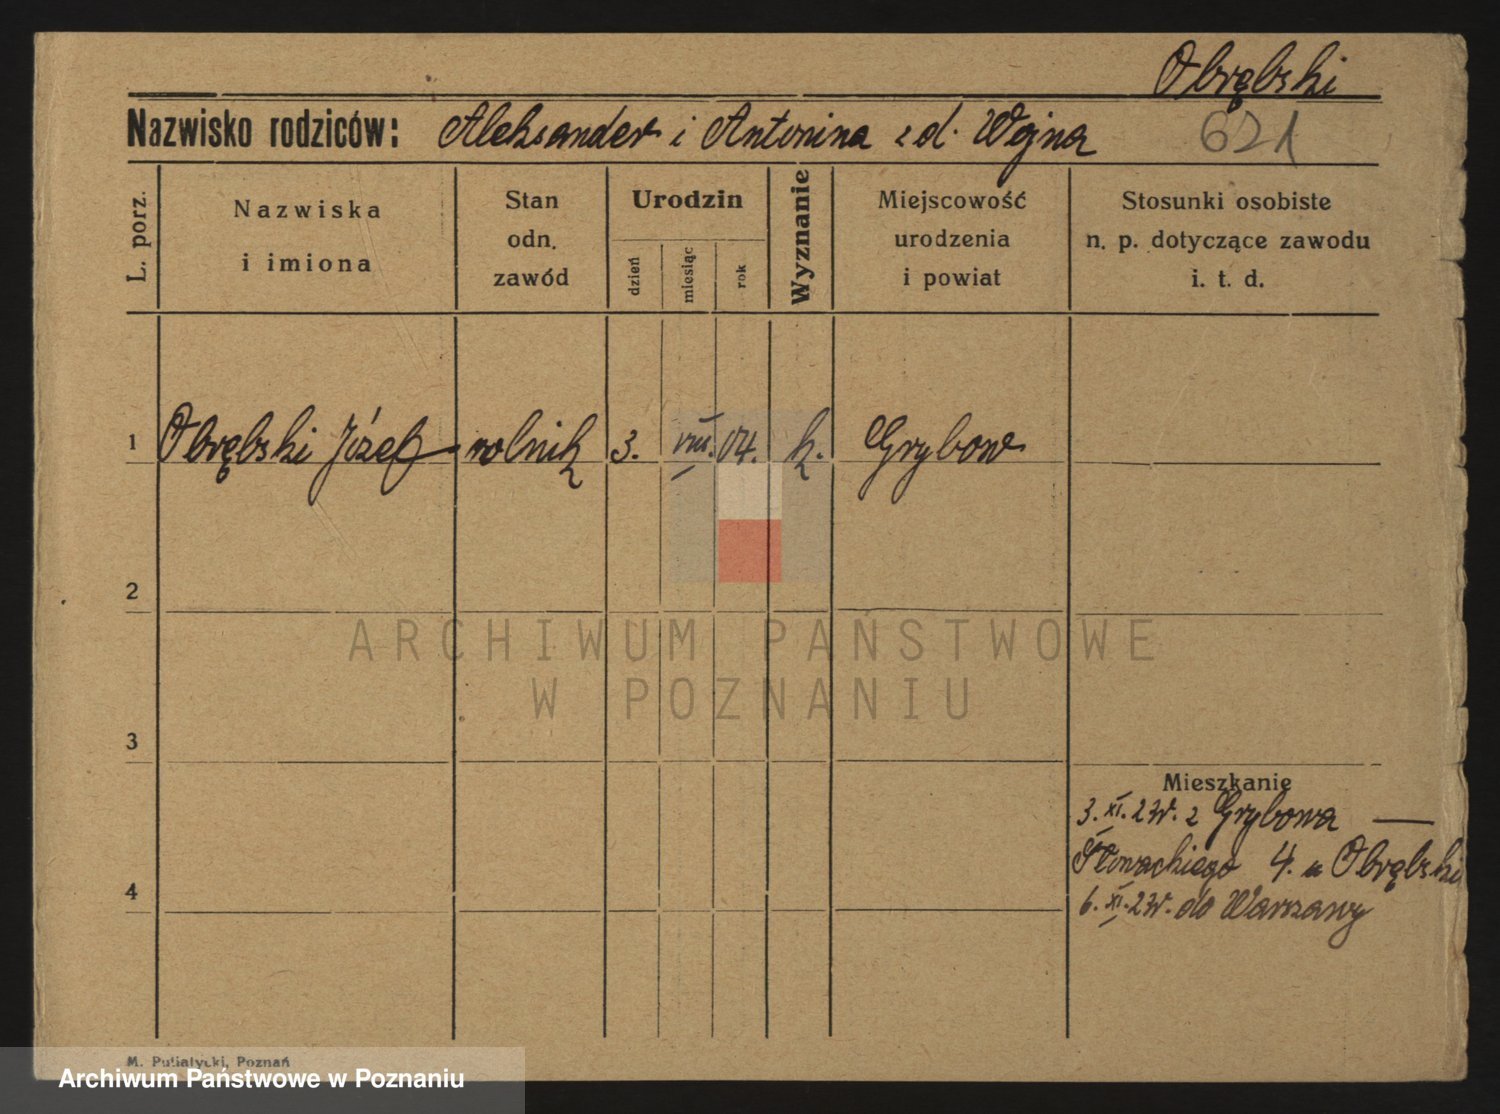 Obrębski
Nazwisko rodziców: Aleksander i Antonina z d. Wojna 621
L. porz.
Nazwiska
i imiona
Stan
odn.
zawód
Urodzin
dzień
miesiąc
rok
Wyznanie
Miejscowość
urodzenia
i powiat
Stosunki osobiste
n. p. dotyczące zawodu
i. t. d.
1 Obrębski Józef rolnik 3. VIII. 04. k. Grybow
2
ARCHIWUM PAŃSTWOWE
W POZNANIU
3
Mieszkanie
3. XI. 23r. z Grybowa —
Słowackiego 4. u Obrębski
4
6. XI. 23r. do Warszawy
M. Putiatycki, Poznań
Archiwum Państwowe w Poznaniu